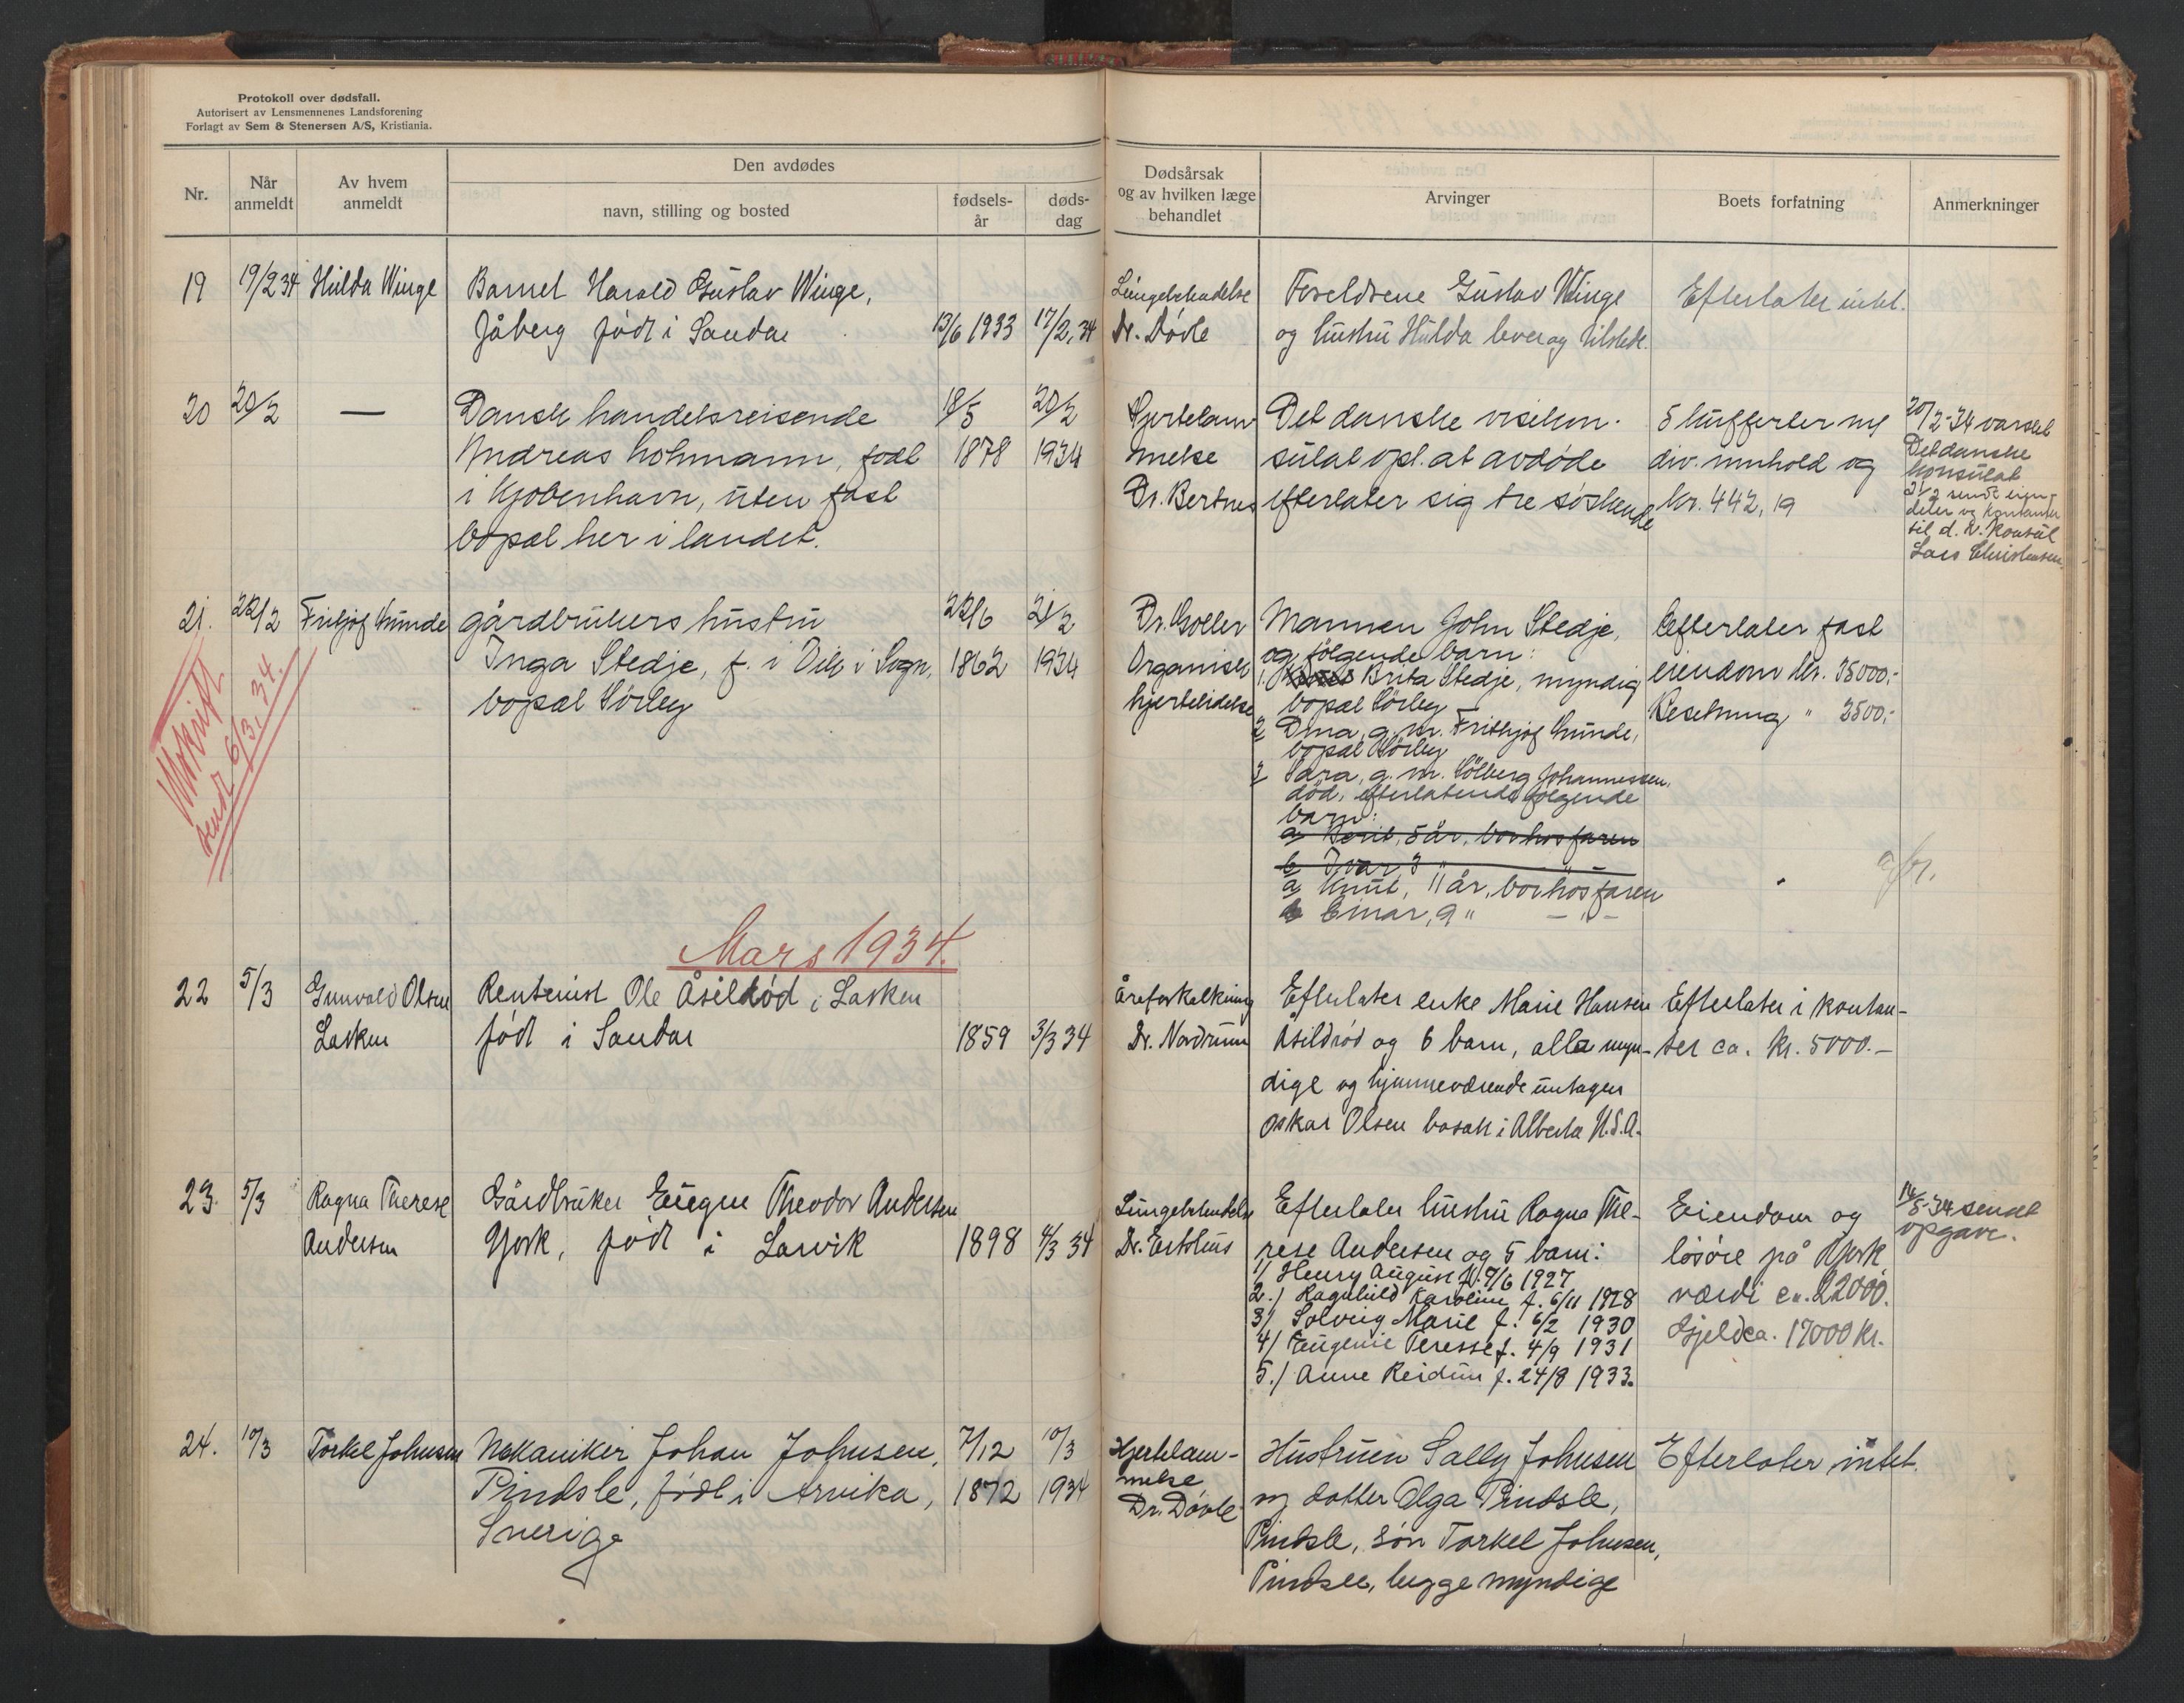 Protokoll over dødsfall.
Autorisert av Lensmennenes Landsforening
Forlagt av Sem & Stenersen A/S, Kristiania.
Nr.
Når anmeldt
Av hvem anmeldt
Den avdødes
navn, stilling og bosted
fødsels-år
døds-dag
Dødsårsak og av hvilken læge behandlet
Arvinger
Boets forfatning
Anmerkninger
19 19/2 34 Hulda Winge
Barnet Harald Gustav Winge,
Jåberg født i Sandar 13/6 1933 17/2, 34
Lungebetendelse
Dr. Døvle
Foreldrene Gustav Winge
og hustru Hulda lever og tilstede.
Efterlater intet.
20 20/2 —
Dansk handelsreisende 18/5 20/2
Andreas Lohmann, født 1878 1934
i Kjøbenhavn, uten fast
bopæl her i landet.
Hjertelam
melse
Dr. Bertnes
Det danske visekon-
sulat opl. at avdøde
efterlater sig tre søskende
5 kufferter m/
div. innhold og
kr. 442,19
20/2-34 varslet
Det danske
konsulat
21/2 sendt eien-
deler og kontanter
til d. v. konsul
Lars Christensen.
21. 22/2 Fritjof Lunde
gårdbrukers hustru 22/6 21/2
Inga Stedje, f. i Vik i Sogn, 1862 1934
bopæl Sørby
Utskrift
sendt 6/3, 34.
Dr. Holler
Organisk
hjertelidelse
Mannen John Stedje,
og følgende barn:
1. Brita Stedje, myndig
bopæl Sørby
2 Dina, g. m. Frithjof Lunde,
bopæl Sørby
3 Sara, g. m. Sølberg Johannessen,
død, efterlatende følgende
barn:
a Berit, 5 år, bor hos faren
b Ivar, 3 " —
a Knut, 11 år, bor hos faren
b Einar, 9 " — " —
Efterlater fast
eiendom kr. 35000,-
Besetning " 2500,-
Mars 1934.
22 5/3 Gunvald Olsen
Lasken
Rentenist Ole Åsildrød i Lasken
født i Sandar 1859 3/3 34
Åreforkalkning
Dr. Nordrum
Efterlater enke Marie Hansen
Åsildrød og 6 barn, alle myn-
dige og hjemmeværende untagen
Oskar Olsen bosatt i Alberta U.S.A.
Efterlater i kontan-
ter ca. kr. 5000.-
23. 5/3 Ragna Therese
Andersen
Gårdbruker Eugen Theodor Andersen
Gjork, født i Larvik 1898 4/3 34
Lungebetendelse
Efterlater hustru Ragna The-
rese Andersen og 5 barn:
1/ Henry August f. 9/6 1927
2./ Ragnhild Karoline f. 6/11 1928
3/ Solveig Marie f. 6/2 1930
4/ Eugenie Teresse f. 4/9 1931
5./ Anne Reidun f. 24/8 1933.
Eiendom og
løsøre på Gjork
værdi ca. 22000.
Gjeld ca. 17000 kr.
14/5-34 sendt
opgave.
24. 10/3 Torkel Johnsen
Mekaniker Johan Johnsen, 7/12 10/3
Pindsle, født i Arvika, 1872 1934
Sverige
Hjertelam-
melse
Dr. Døvle
Hustruen Sally Johnsen
og datter Olga Pindsle,
Pindsle, søn Torkel Johnsen,
Pindsle, begge myndige
Efterlater intet.